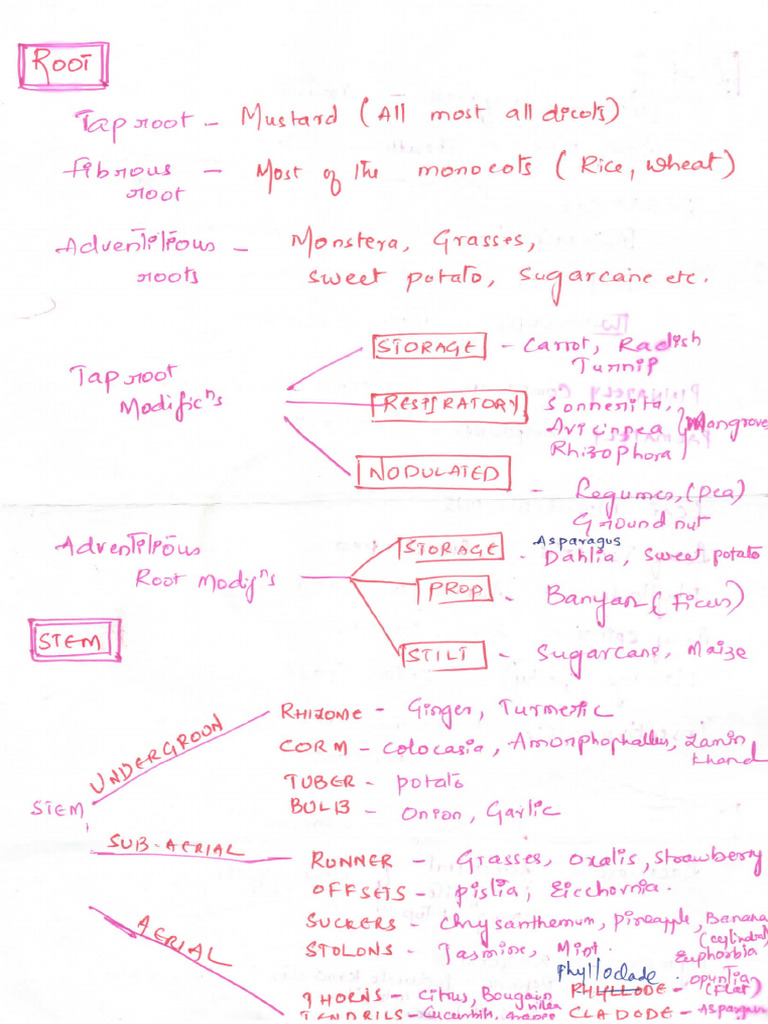 ROOT
Tap root - Mustard (All most all dicots)
fibrous root - Most of the monocots (Rice, wheat)
Adventitious roots - Monstera, Grasses,
sweet potato, sugarcane etc.
Tap root Modificns
STORAGE - Carrot, Radish
Turnip
RESPIRATORY Sonnerita,
Avicinnea
Rhizophora } Mangrove
NODULATED - Legumes, (pea)
Ground nut
Adventitious Root Modifns
STORAGE - Asparagus
Dahlia, sweet potato
PROP - Banyan (Ficus)
STILT - Sugarcane, Maize
STEM
STEM
UNDERGROUN
RHIZOME - Ginger, Turmeric
CORM - colocasia, Amorphophallus, Zamin khand
TUBER - potato
BULB - Onion, Garlic
SUB-AERIAL
RUNNER - Grasses, oxalis, strawberry
OFFSETS - pistia, Eicchornia.
SUCKERS - chrysanthemum, pineapple, Banana
STOLONS - Jasmine, Mint.
AERIAL
(cylindrical)
Euphorbia
phylloclade - opuntia
(flat)
THORNS - citrus, Bougain villea PHYLLODE -
TENDRILS - Cucurbits, Grapes CLADODE - Asparagus